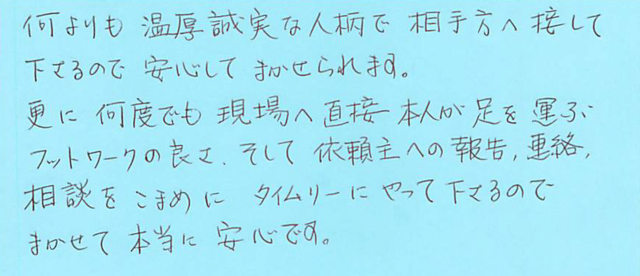 何よりも 温厚誠実な人柄で 相手方へ接して
下さるので 安心して まかせられます。
更に 何度でも 現場へ直接 本人が 足を運ぶ
フットワークの良さ、そして 依頼主への報告,連絡,
相談を こまめに タイムリーに やって下さるので
まかせて 本当に 安心です。